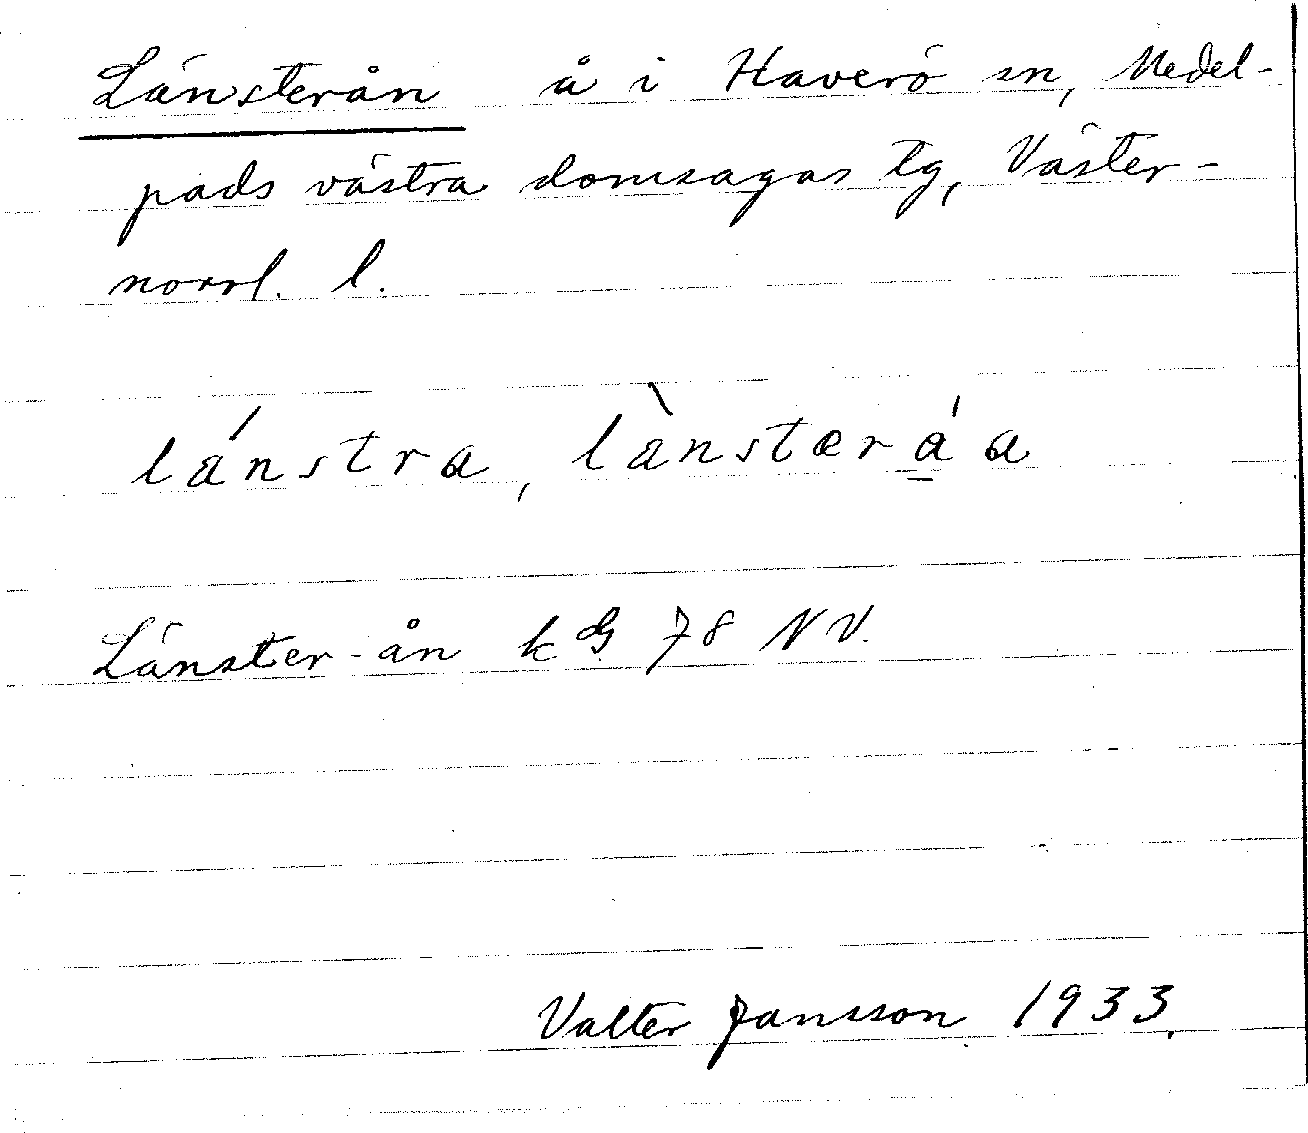 Länsterån å i Haverö sn, Medel-
pads västra domsagas tg, Väster-
norrl. l.
lánstra, lànsterá̱a
Länster-ån k dg 78 NV.
Valter Jansson 1933.